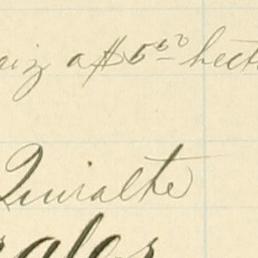 aiz a $5.50 hect
Quiralte
ales